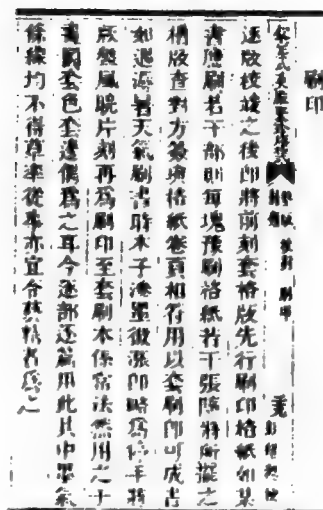 刷印
逐版校竣之後即將前刻套格版先行刷印格紙如某
書應刷若干部則每塊預刷格紙若干張隨將所擺之
槽版查對方簽填格紙卷頁相符用以套刷即可成書
如遇溽暑天氣刷書時木子滲墨微漲即略為停手將
版盤風晾片刻再為刷印至套刷本係舊法然用之于
畫圖套色套邊偶為之耳今逐部逐篇用此其中墨氣
條線均不得草率從事亦宜令藝精者為之